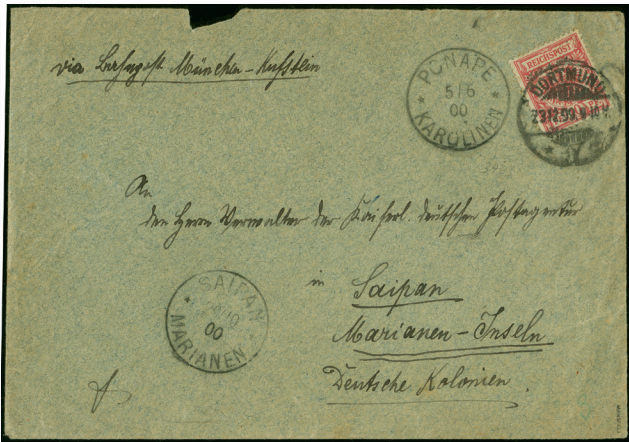 via Bahnpost München-Kufstein
PONAPE
5/6
00
* KAROLINEN *
REICHSPOST
DORTMUND
23.12.99
* 1 *
An
den Herrn Verwalter der Kaiserl. deutschen Postagentur
in Saipan
Marianen-Inseln
Deutsche Kolonien.
SAIPAN
00
MARIANEN